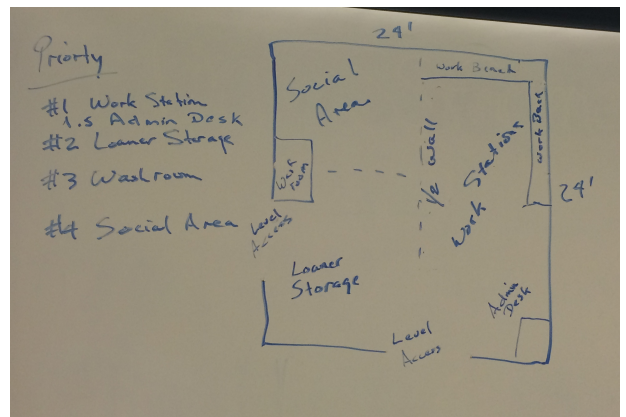 Priority
#1 Work Station
1.5 Admin Desk
#2 Loaner Storage
#3 Washroom
#4 Social Area
24'
Social
Area
Work Bench
Work Bench
1/2 wall
Work Station
24'
Wash
room
Level
Access
Loaner
Storage
Admin
Desk
Level
Access